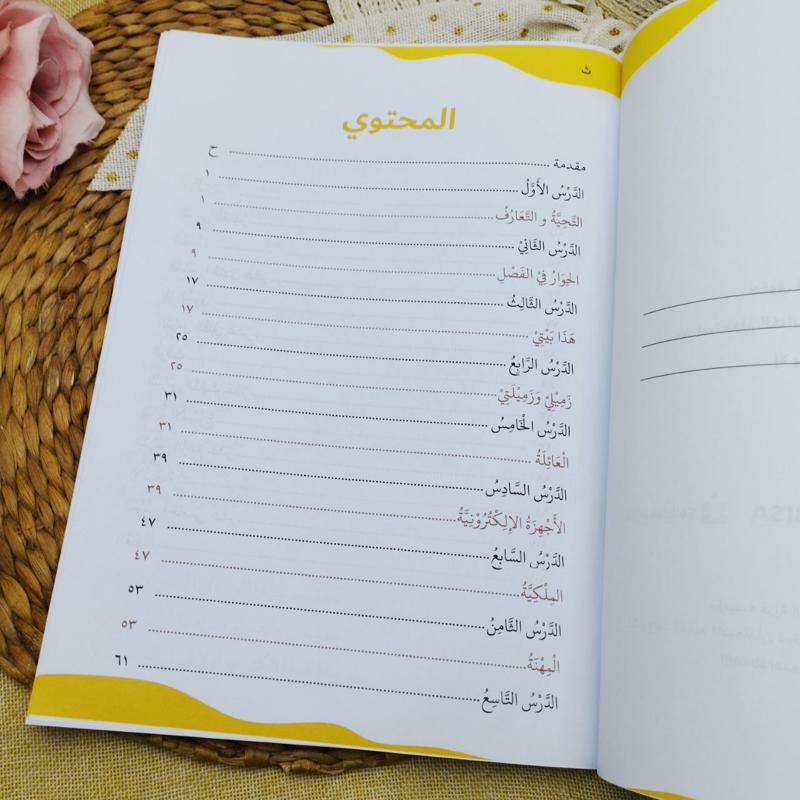 ث
المحتوي
مقدمة ........ ح
الدَّرْسُ الأَوَّلُ ........ ١
التَّحِيَّةُ و التَّعَارُفُ ........ ١
الدَّرْسُ الثَّانِيْ ........ ٩
الحِوَارُ فِيْ الفَصْلِ ........ ٩
الدَّرْسُ الثَّالِثُ ........ ١٧
هَذَا بَيْتِيْ ........ ١٧
الدَّرْسُ الرَّابِعُ ........ ٢٥
زَمِيْلِيْ وَزَمِيْلَتِيْ ........ ٢٥
الدَّرْسُ الْخَامِسُ ........ ٣١
الْعَائِلَةُ ........ ٣١
الدَّرْسُ السَّادِسُ ........ ٣٩
الأَجْهِزَةُ الإِلِكْتُرُوْنِيَّةُ ........ ٣٩
الدَّرْسُ السَّابِعُ ........ ٤٧
المِلْكِيَّةُ ........ ٤٧
الدَّرْسُ الثَّامِنُ ........ ٥٣
الْمِهْنَةُ ........ ٥٣
الدَّرْسُ التَّاسِعُ ........ ٦١